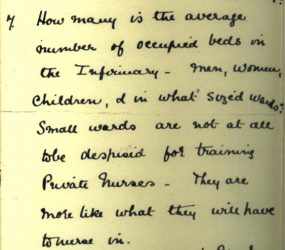 7 How many is the average
number of occupied beds in
the Infirmary - Men, Women,
Children, & in what sized wards?
Small wards are not at all
to be despised for training
Private Nurses - They are
more like what they will have
to nurse in.